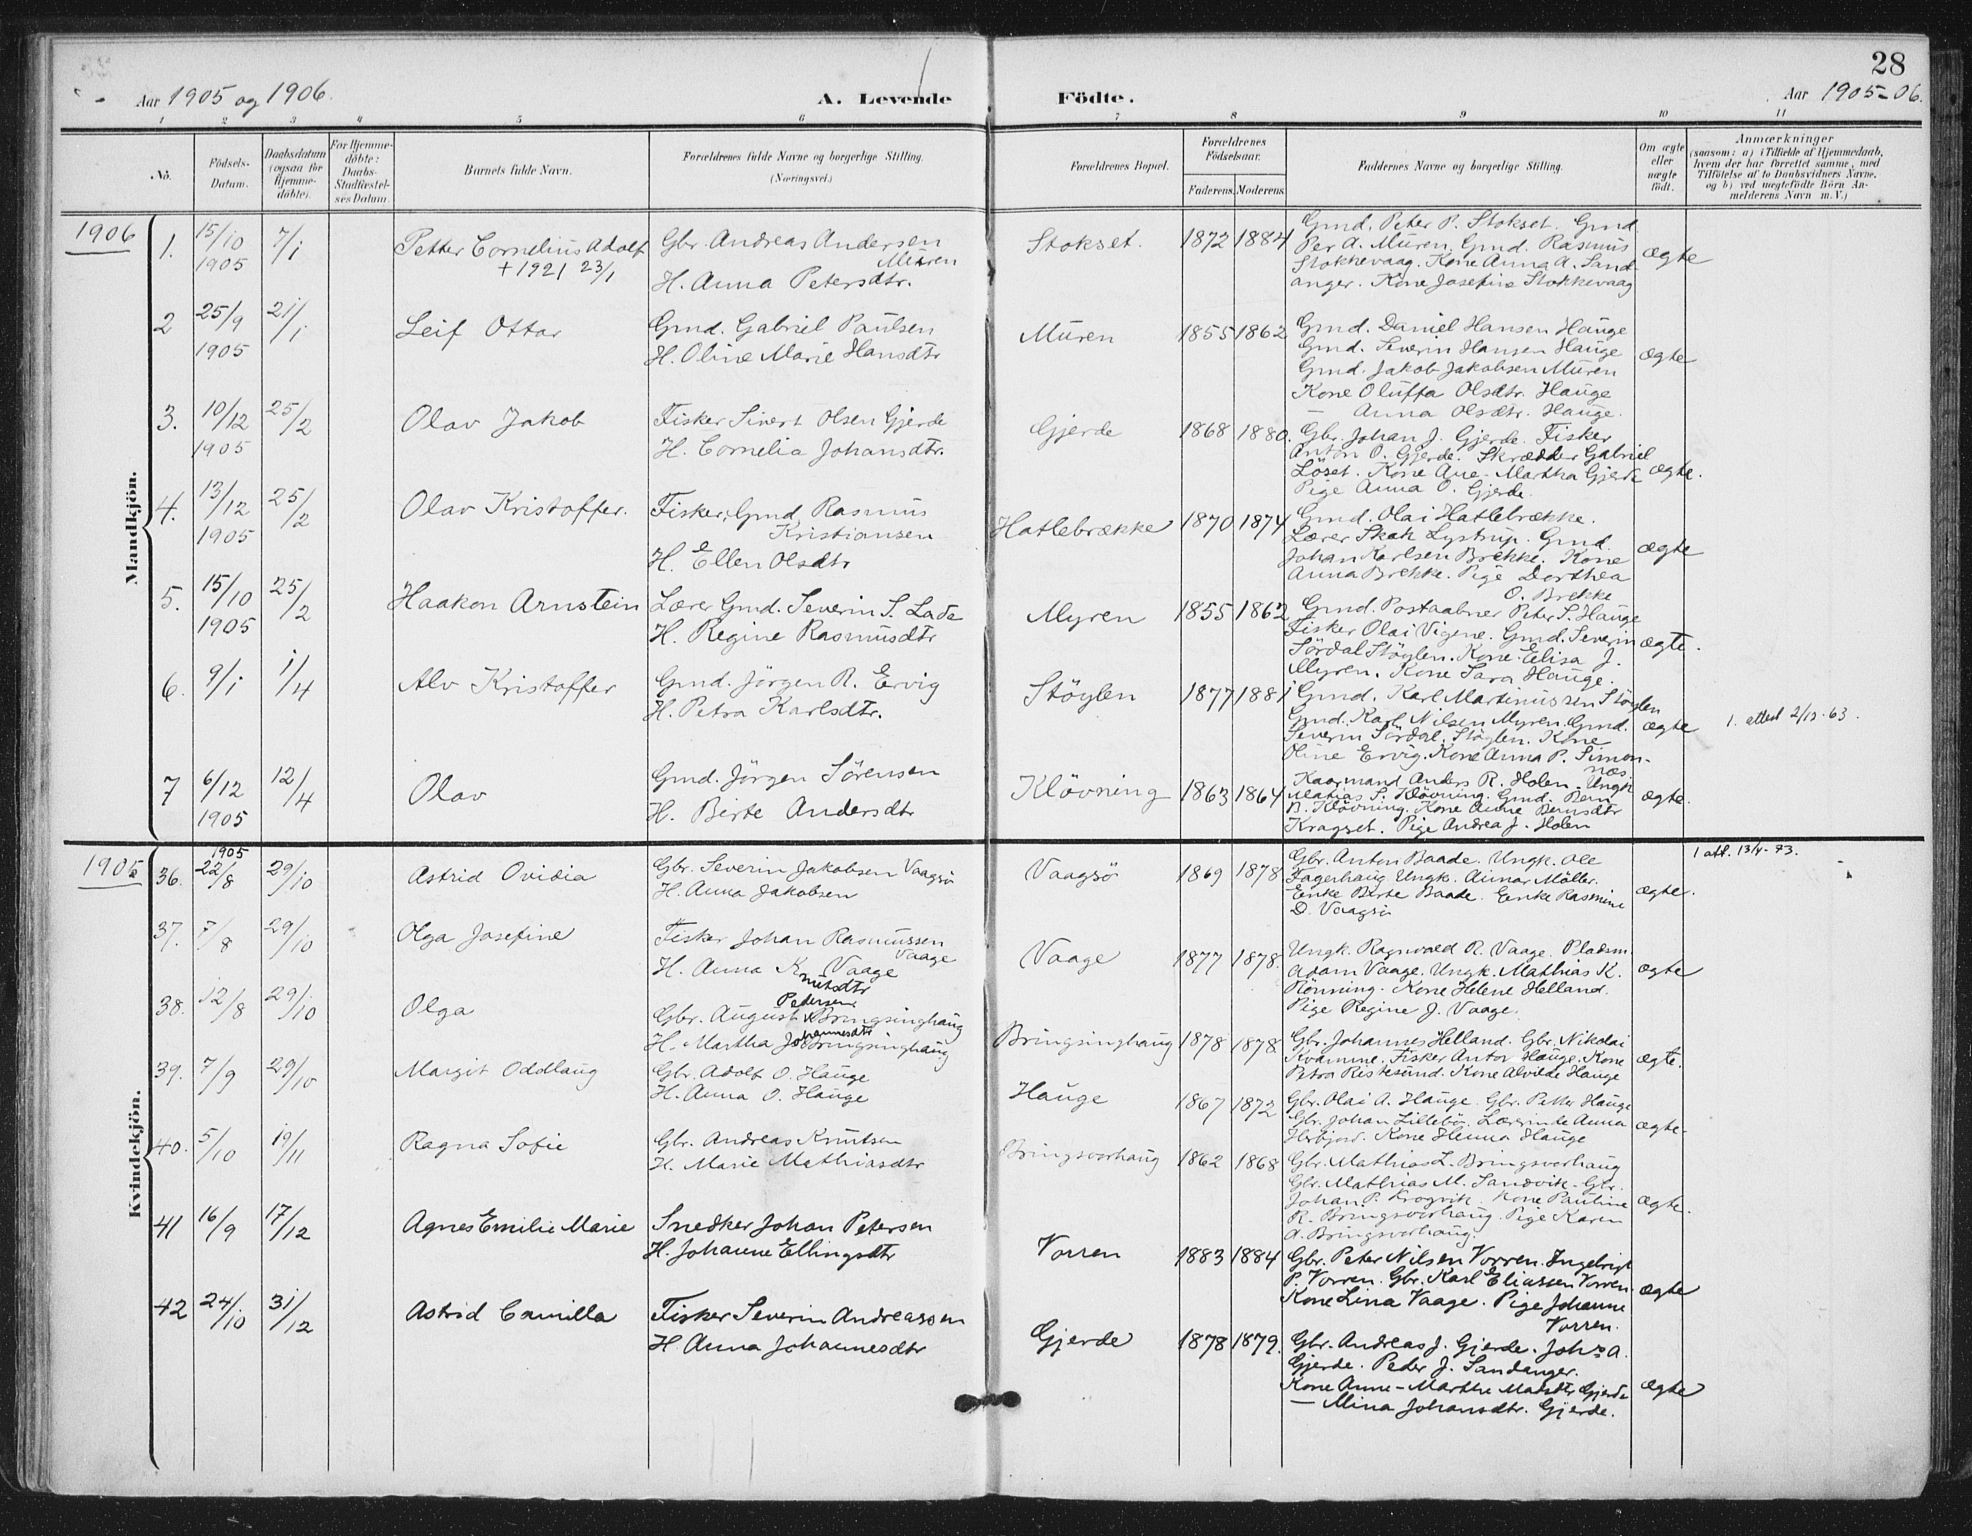 28
Aar 1905 og 1906.
A. Levende Födte.
Aar 1905-06.
1 2 3 4 5 6 7 8 9 10 11
No.
Födsels-Datum.
Daabsdatum (ogsaa for Hjemme-döbte).
For Hjemme-döbte: Daabs-Stadfæstel-ses Datum.
Barnets fulde Navn.
Forældrenes fulde Navne og borgerlige Stilling.
(Næringsvei.)
Forældrenes Bopæl.
Forældrenes Födselsaar.
Faderens. Moderens.
Faddernes Navne og borgerlige Stilling.
Om ægte eller uægte födt.
Anmærkninger
(saasom: a) i Tilfælde af Hjemmedaab,
hvem der har forrettet samme, med
Tilföielse af to Daabsvidners Navne.
og b) ved uægtefödte Börn An-
melderens Navn m. V.)
Mandkjön.
1906
1. 15/10 1905 7/1 Petter Cornelius Adolf
+ 1921 23/1
Gbr. Andreas Andersen
Muren
H. Anna Petersdtr.
Stokset. 1872 1884
Gmd. Peter P. Stokset. Gmd.
Per A. Muren. Gmd. Rasmus
Stokkevaag. Kone Anna A. Sand-
anger. Kone Josefine Stokkevaag
ægte
2 25/9 1905 21/1 Leif Ottar
Gmd. Gabriel Paulsen
H. Oline Marie Hansdtr
Muren 1855 1862
Gmd. Daniel Hansen Hauge
Gmd. Severin Hansen Hauge
Gmd. Jakob Jakobsen Muren
Kone Oluffa Olsdtr. Hauge
— Anna Olsdtr. Hauge.
ægte
3. 10/12 1905 25/2 Olav Jakob
Fisker Sivert Olsen Gjerde
H. Cornelia Johansdtr.
Gjerde 1868 1880.
Gbr. Johan J. Gjerde. Fisker
Anton O. Gjerde. Skrædder Gabriel
Löset. Kone Ane-Martha Gjerde
Pige Anna O. Gjerde.
ægte.
4. 13/12 1905 25/2 Olav Kristoffer.
Fisker, Gmd Rasmus
Kristiansen
H. Ellen Olsdtr
Hatlebrække 1870 1874
Gmd. Olai Hatlebrække.
Lærer Skak Lystrup. Gmd.
Johan Karlsen Brekke. Kone
Anna Brekke. Pige Dorthea
O. Brekke
ægte
5. 15/10 1905 25/2 Haakon Arnstein
Lærer Gmd. Severin S. Lade
H. Regine Rasmusdtr
Myren 1855 1862
Gmd. Postaabner Peter S. Hauge
Fisker Olai Vigene. Gmd. Severin
Sördal Stöylen. Kone Elisa J.
Myren. Kone Sara Hauge.
ægte.
6. 9/1 1/4 Alv Kristoffer
Gmd. Jörgen R. Ervig
H. Petra Karlsdtr.
Stöylen 1877 1881
Gmd. Karl Martinussen Stöylen
Gmd. Karl Nilsen Myren. Gmd.
Severin Sördal, Stöylen. Kone
Oline Ervig. Kone Anna P. Simon-
næs
ægte
1. attest 2/12-63.
7 6/12 1905 12/4 Olav
Gmd. Jörgen Sörensen
H. Birte Andersdtr
Klövning 1863 1864
Kaarmand Anders R. Holen. Ungk
Matias S. Klövning. Gmd. Bern
B. Klövning. Kone Anne Berntsdtr
Kragset. Pige Andrea J. Holen
ægte.
Kvindekjön.
1905
36. 1905 22/8 29/10 Astrid Ovidia
Gbr. Severin Jakobsen Vaagsö
H. Anna Jakobsen
Vaagsö 1869 1878
Gbr. Anton Baade. Ungk. Ole
Fagerhaug Ungk. Annar Möller.
Enke Birte Baade. Enke Rasmine
D. Vaagsö
ægte.
1 att. 13/4-73.
37. 7/8 29/10 Olga Josefine
Fisker Johan Rasmussen
Vaage
H. Anna Knutsdtr Vaage
Vaage 1877 1878.
Ungk. Ragnvald R. Vaage. Pladsm.
Adam Vaage. Ungk. Mathias K.
Rönning. Kone Helene Helland.
Pige Regine J. Vaage.
ægte
38. 12/8 29/10 Olga
Pedersen
Gbr. August Bringsinghaug
H. Martha Johannesdtr Bringsinghaug
Bringsinghaug 1878 1878
Gbr. Johannes Helland. Gbr. Nikolai
Kvamme. Fisker Anton Hauge. Kone
Petra Ristesund. Kone Alvilde Hauge
ægte.
39. 7/9 29/10 Margit Oddlaug
Gbr. Adolf O. Hauge
H. Anna O. Hauge
Hauge 1867 1872
Gbr. Olai A. Hauge. Gbr. Petter Hauge
Gbr. Johan Lillebö. Lærerinde Anna
Herbjorn. Kone Henna Hauge
ægte.
40. 5/10 19/11 Ragna Sofie
Gbr. Andreas Knutsen
H. Marie Mathiasdtr
Bringsvorhaug 1862 1868
Gbr. Mathias L. Bringsvorhaug
Gbr. Mathias M. Sandvik. Gbr.
Johan P. Krogvik. Kone Pauline
R. Bringsvorhaug. Pige Karen
A. Bringsvorhaug.
ægte.
41 16/9 17/12 Agnes Emilie Marie
Snedker Johan Petersen
H. Johanne Ellingsdtr
Vorren 1883 1884
Gbr. Peter Nilsen Vorren. Ingebrigt
P. Vorren. Gbr. Karl Eliassen Vorren
Kone Lina Vaage. Pige Johanne
Vorren.
ægte
42 24/10 31/12 Astrid Camilla
Fisker Severin Andreassen
H. Anna Johannesdtr
Gjerde 1878 1879.
Gbr. Andreas J. Gjerde. Johs A.
Gjerde. Peder J. Sandanger.
Kone Anne-Marthe Madsdtr Gjerde
— Mina Johansdtr. Gjerde.
ægte